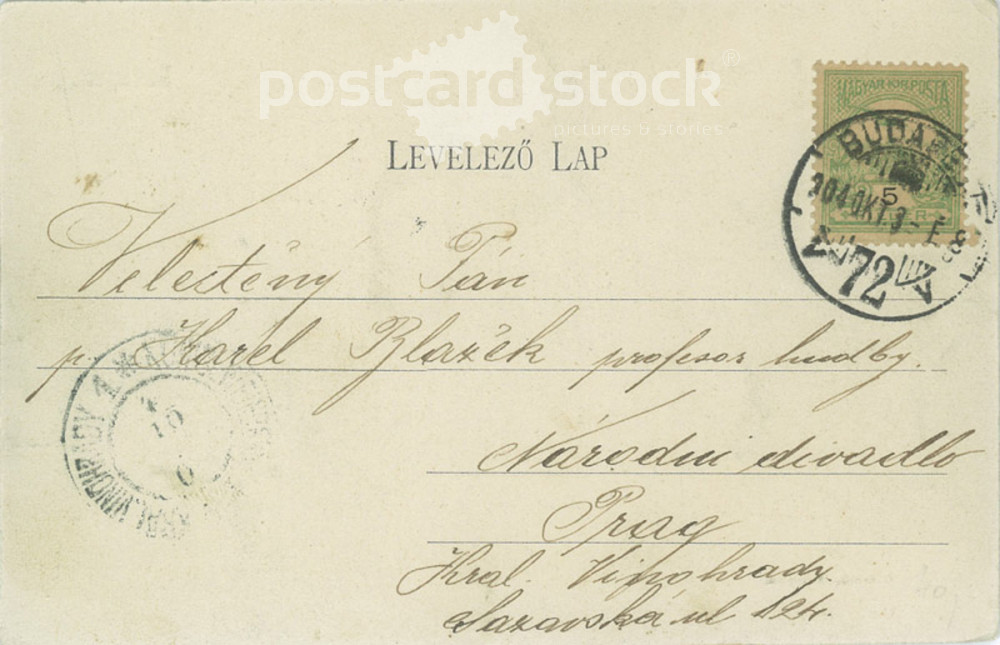 postcard stock®
pictures & stories
LEVELEZŐ LAP
MAGYAR KIR. POSTA
5
BUDAPEST
904 OKT.
72
Velectěný Pán
p. Karel Blažek profesor hudby.
Národní divadlo
Prag
Král. Vinohrady.
Sazavská ul 124.
VINOHRADY 1
10